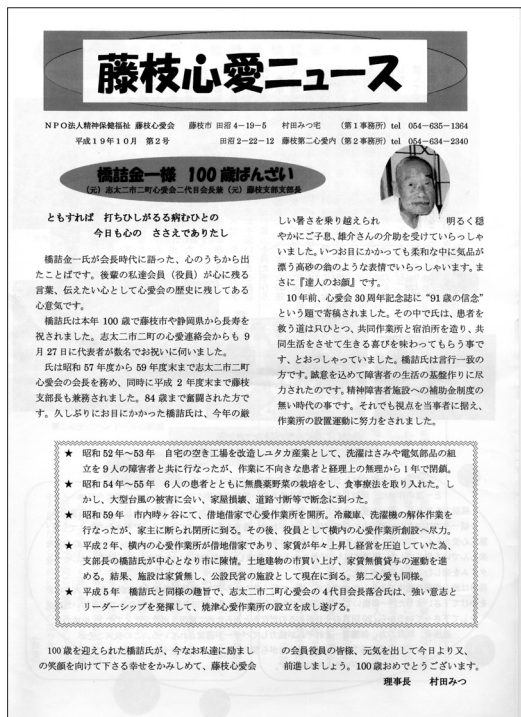 藤枝心愛ニュース
NPO法人精神保健福祉 藤枝心愛会 藤枝市 田沼4-19-5 村田みつ宅 (第1事務所) tel 054-635-1364
平成19年10月 第2号 田沼2-22-12 藤枝第二心愛内 (第2事務所) tel 054-634-2340
橋詰金一様 100歳ばんざい
(元)志太二市二町心愛会二代目会長兼(元)藤枝支部支部長
ともすれば 打ちひしがるる病むひとの
今日も心の ささえでありたし
橋詰金一氏が会長時代に語った、心のうちから出
たことばです。後輩の私達会員(役員)が心に残る
言葉、伝えたい心として心愛会の歴史に残してある
心意気です。
橋詰氏は本年100歳で藤枝市や静岡県から長寿を
祝されました。志太二市二町の心愛連絡会からも9
月27日に代表者が数名でお祝いに伺いました。
氏は昭和57年度から59年度末まで志太二市二町
心愛会の会長を務め、同時に平成2年度末まで藤枝
支部長も兼務されました。84歳まで奮闘された方で
す。久しぶりにお目にかかった橋詰氏は、今年の厳
しい暑さを乗り越えられ 明るく穏
やかにご子息、雄介さんの介助を受けていらっしゃ
いました。いつお目にかかっても柔和な中に気品が
漂う高砂の翁のような表情でいらっしゃいます。ま
さに『達人のお顔』です。
10年前、心愛会30周年記念誌に“91歳の信念”
という題で寄稿されました。その中で氏は、患者を
救う道は只ひとつ、共同作業所と宿泊所を造り、共
同生活をさせて生きる喜びを味わってもらう事で
す、とおっしゃっていました。橋詰氏は言行一致の
方です。誠意を込めて障害者の生活の基盤作りに尽
力されたのです。精神障害者施設への補助金制度の
無い時代の事です。それでも視点を当事者に据え、
作業所の設置運動に努力をされました。
★ 昭和52年～53年 自宅の空き工場を改造しユタカ産業として、洗濯はさみや電気部品の組
立を9人の障害者と共に行なったが、作業に不向きな患者と経理上の無理から1年で閉鎖。
★ 昭和54年～55年 6人の患者とともに無農薬野菜の栽培をし、食事療法を取り入れた。し
かし、大型台風の被害に会い、家屋損壊、道路寸断等で断念に到った。
★ 昭和59年 市内時ヶ谷にて、借地借家で心愛作業所を開所。冷蔵庫、洗濯機の解体作業を
行なったが、家主に断られ閉所に到る。その後、役員として横内の心愛作業所創設へ尽力。
★ 平成2年、横内の心愛作業所が借地借家であり、家賃が年々上昇し経営を圧迫していた為、
支部長の橋詰氏が中心となり市に陳情。土地建物の市買い上げ、家賃無償貸与の運動を進
める。結果、施設は家賃無し、公設民営の施設として現在に到る。第二心愛も同様。
★ 平成5年 橋詰氏と同様の趣旨で、志太二市二町心愛会の4代目会長落合氏は、強い意志と
リーダーシップを発揮して、焼津心愛作業所の設立を成し遂げる。
100歳を迎えられた橋詰氏が、今なお私達に励まし
の笑顔を向けて下さる幸せをかみしめて、藤枝心愛会
の会員役員の皆様、元気を出して今日より又、
前進しましょう。100歳おめでとうございます。
理事長 村田みつ